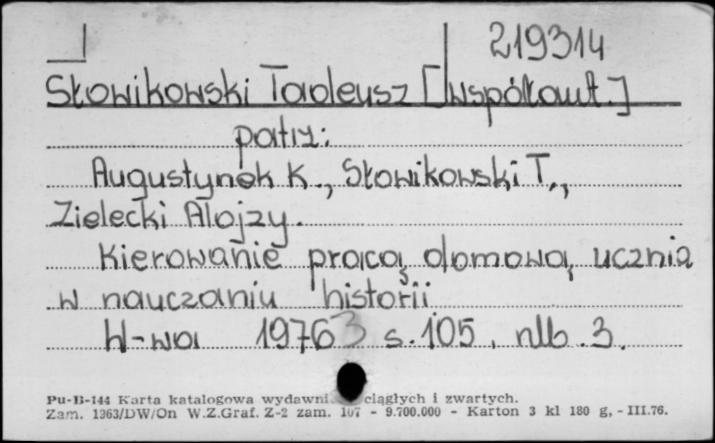 219314
Słowikowski Tadeusz [współaut.]
patrz:
Augustynek K., Słowikowski T.,
Zielecki Alojzy.
Kierowanie pracą domową ucznia
w nauczaniu historii
W-wa 1976 s. 105, nlb. 3.
Pu-B-144 Karta katalogowa wydawni ciągłych i zwartych.
Zam. 1363/DW/On W.Z.Graf. Z-2 zam. 107 - 9.700.000 - Karton 3 kl 180 g, - III.76.